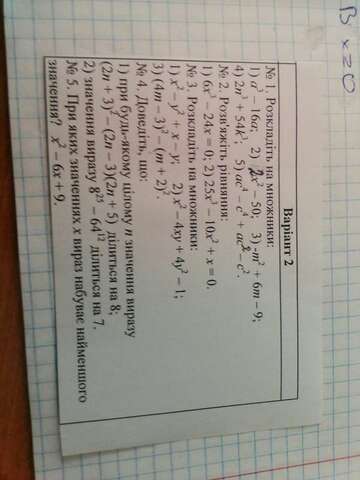 В х=0
Варіант 2
№ 1. Розкладіть на множники:
1) a³ – 16a; 2) 2x² – 50; 3) -m² + 6m – 9;
4) 2n³ + 54k³; 5) ac⁴ – c⁴ + ac² – c².
№ 2. Розв'яжіть рівняння:
1) 6x³ – 24x = 0; 2) 25x³ – 10x² + x = 0.
№ 3. Розкладіть на множники:
1) x² – y² + x – y; 2) x² – 4xy + 4y² – 1;
3) (4m – 3)² – (m + 2)².
№ 4. Доведіть, що:
1) при будь-якому цілому n значення виразу
(2n + 3)² – (2n – 3)(2n + 5) ділиться на 8;
2) значення виразу 8²⁵ – 64¹² ділиться на 7.
№ 5. При яких значеннях x вираз набуває найменшого
значення? x² – 6x + 9.